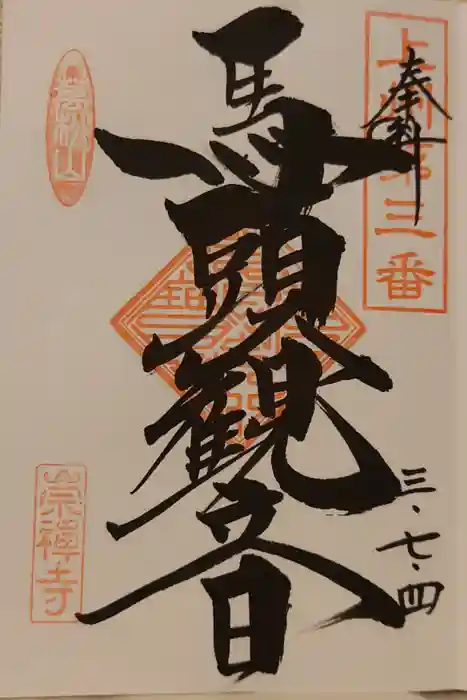 上州第三番
奉拝
三・七・四
馬頭観音
萬松山
崇禅寺